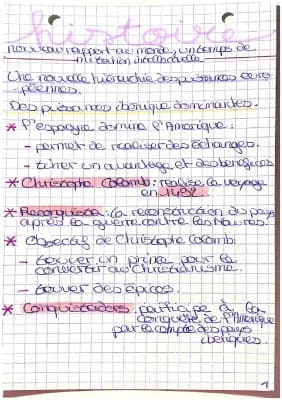 histoire
nouveau rapport au monde, un temps de
mutation intellectuelle
Une nouvelle hiérarchie des puissances euro-
péennes.
Des puissances ibérique dominantes.
* l'espagne domine l'Amérique :
- permet de réaliser des échanges.
- tirer un avantage et des bénéfices
* Christophe Colomb : réalise le voyage
en 1492
* Reconquista : la reconstruction du pays
après la guerre contre les Maures.
* Objectif de Christophe Colomb
- trouver un prince pour la
convertir au Christianisme.
- trouver des épices.
* Conquistadors : participe à la
conquête de l'Amérique
par le compte des pays
ibériques.
1